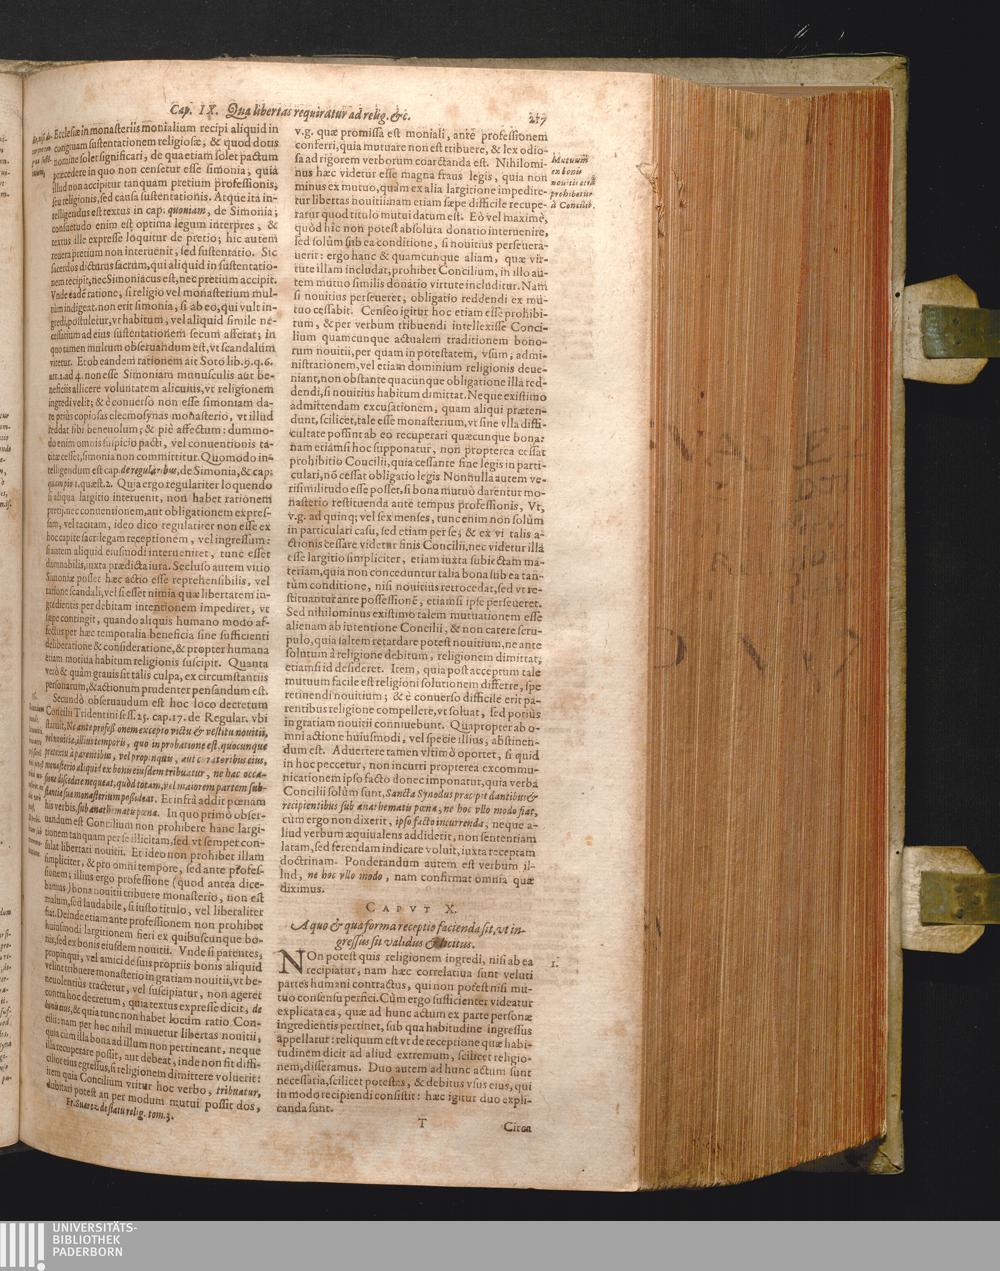 Cap. IX. Qua libertas requiratur ad relig. &c.
217
Ecclesiæ in monasteriis monialium recipi aliquid in
congruam sustentationem religiosæ, & quod dotis
nomine solet significari, de qua etiam solet pactum
præcedere in quo non censetur esse simonia; quia
illud non accipitur tanquam pretium professionis,
seu religionis, sed causa sustentationis. Atque ita in-
telligendus est textus in cap. quoniam, de Simonia;
consuetudo enim est optima legum interpres, &
textus ille expresse loquitur de pretio; hic autem
reuera pretium non interuenit, sed sustentatio. Sic
sacerdos dicturus sacrum, qui aliquid in sustentatio-
nem recipit, nec Simoniacus est, nec pretium accipit.
Vnde eadē ratione, si religio vel monasterium mul-
tùm indigeat, non erit simonia, si ab eo, qui vult in-
gredi, postuletur, vt habitum, vel aliquid simile ne-
cessarium ad eius sustentationem secum afferat; in
quo tamen multum obseruandum est, vt scandalum
vitetur. Et ob eandem rationem ait Soto lib. 9. q. 6.
art. 2. ad 4. non esse Simoniam munusculis aut be-
neficiis allicere voluntatem alicuius, vt religionem
ingredi velit; & è conuerso non esse simoniam da-
re prius copiosas eleemosynas monasterio, vt illud
reddat sibi beneuolum; & piè affectum: dummo-
do enim omnis suspicio pacti, vel conuentionis ta-
citæ cesset, simonia non committitur. Quomodo in-
telligendum est cap. de regularibus, de Simonia, & cap.
quam pio 1. quæst. 2. Quia ergo regulariter loquendo
si aliqua largitio interuenit, non habet rationem
pretij, nec conuentionem, aut obligationem expres-
sam, vel tacitam, ideo dico regulariter non esse ex
hoc capite sacrilegam receptionem, vel ingressum:
si autem aliquid eiusmodi interueniret, tunc esset
damnabilis, iuxta prædicta iura. Secluso autem vitio
Simoniæ posset hæc actio esse reprehensibilis, vel
ratione scandali, vel si esset nimia quæ libertatem in-
gredientis per debitam intentionem impediret, vt
sæpe contingit, quando aliquis humano modo af-
fectus per hæc temporalia beneficia sine sufficienti
deliberatione & consideratione, & propter humana
etiam motiua habitum religionis suscipit. Quanta
verò & quàm grauis sit talis culpa, ex circumstantiis
personarum, & actionum prudenter pensandum est.
Secundò obseruandum est hoc loco decretum
Concilii Tridentini sess. 25. cap. 17. de Regular. vbi
statuit, Ne ante professionem excepto victu & vestitu nouitii,
vel nouitiæ, illius temporis, quo in probatione est, quocunque
prætextu à parentibus, vel propinquis, aut curatoribus eius,
monasterio aliquid ex bonis eiusdem tribuatur, ne hac occa-
sione discedere nequeat, quòd totam, vel maiorem partem sub-
stantiæ suæ monasterium possideat. Et infrà addit pœnam
his verbis, sub anathematis pœna. In quo primò obser-
uandum est Concilium non prohibere hanc largi-
tionem tanquam per se illicitam, sed vt semper con-
sulat libertati nouitii. Et ideo non prohibet illam
simpliciter, & pro omni tempore, sed ante profes-
sionem; illius ergo professione (quod antea dice-
bamus) bona nouitii tribuere monasterio, non est
malum, sed laudabile, si iusto titulo, vel liberaliter
fiat. Deinde etiam ante professionem non prohibet
huiusmodi largitionem fieri ex quibuscunque bo-
nis, sed ex bonis eiusdem nouitii. Vnde si parentes,
propinqui, vel amici de suis propriis bonis aliquid
velint tribuere monasterio in gratiam nouitii, vt be-
neuolentiùs tractetur, vel suscipiatur, non ageret
contra hoc decretum, quia textus expresse dicit, de
bonis eius, & quia tunc non habet locum ratio Con-
cilii: nam per hoc nihil minuetur libertas nouitii,
quia cùm illa bona ad illum non pertineant, neque
illa recuperare possit, aut debeat, inde non fit diffi-
cilior eius egressus, si religionem dimittere voluerit:
item quia Concilium vtitur hoc verbo, tribuatur,
dubitari potest an per modum mutui possit dos,
Fr. Suarez de statu relig. tom. 3.
v.g. quæ promissa est moniali, ante professionem
conferri, quia mutuare non est tribuere, & lex odio-
sa ad rigorem verborum coarctanda est. Nihilomi-
nus hæc videtur esse magna fraus legis, quia non
minus ex mutuo, quàm ex alia largitione impedire-
tur libertas nouitii: nam etiam sæpe difficile recupe-
ratur quod titulo mutui datum est. Eò vel maximè,
quòd hîc non potest absoluta donatio interuenire,
sed solùm sub ea conditione, si nouitius perseuera-
uerit: ergo hanc & quamcunque aliam, quæ vir-
tute illam includat, prohibet Concilium, in illo au-
tem mutuo similis donatio virtute includitur. Nam
si nouitius perseueret, obligatio reddendi ex mu-
tuo cessabit. Censeo igitur hoc etiam esse prohibi-
tum, & per verbum tribuendi intellexisse Conci-
lium quamcunque actualem traditionem bono-
rum nouitii, per quam in potestatem, vsum, admi-
nistrationem, vel etiam dominium religionis deue-
niant, non obstante quacunque obligatione illa red-
dendi, si nouitius habitum dimittat. Neque existimo
admittendam excusationem, quam aliqui præten-
dunt, scilicet, tale esse monasterium, vt sine vlla diffi-
cultate possint ab eo recuperari quæcunque bona:
nam etiamsi hoc supponatur, non propterea cessat
prohibitio Concilii, quia cessante fine legis in parti-
culari, nō cessat obligatio legis. Nonnulla autem ve-
risimilitudo esse posset, si bona mutuò darentur mo-
nasterio restituenda ante tempus professionis, Vt,
v.g. ad quinq; vel sex menses, tunc enim non solùm
in particulari casu, sed etiam per se; & ex vi talis a-
ctionis cessare videtur finis Concilii, nec videtur illa
esse largitio simpliciter, etiam iuxta subiectam ma-
teriam, quia non conceduntur talia bona sub ea tan-
tùm conditione, nisi nouitius retrocedat, sed vt re-
stituantur ante possessionē, etiamsi ipse perseueret.
Sed nihilominus existimo talem mutuationem esse
alienam ab intentione Concilii, & non carere scru-
pulo, quia saltem retardare potest nouitium, ne ante
solutum à religione debitum, religionem dimittat,
etiamsi id desideret. Item, quia post acceptum tale
mutuum facile est religioni solutionem differre, spe
retinendi nouitium; & è conuerso difficile erit pa-
rentibus religione compellere, vt soluat, sed potiùs
in gratiam nouitii conniuebunt. Quapropter ab o-
mni actione huiusmodi, vel specie illius, abstinen-
dum est. Aduertere tamen vltimò oportet, si quid
in hoc peccetur, non incurri propterea excommu-
nicationem ipso facto donec imponatur, quia verba
Concilii solùm sunt, Sancta Synodus præcipit dantibus &
recipientibus sub anathematis pœna, ne hoc vllo modo fiat,
cùm ergo non dixerit, ipso facto incurrenda, neque a-
liud verbum æquiualens addiderit, non sententiam
latam, sed ferendam indicare voluit, iuxta receptam
doctrinam. Ponderandum autem est verbum il-
lud, ne hoc vllo modo, nam confirmat omnia quæ
diximus.
Mutuum
ex bonis
nouitii etiã
prohibetur
à Concilio.
CAPVT X.
A quo & qua forma receptio facienda sit, vt in-
gressus sit validus & licitus.
NOn potest quis religionem ingredi, nisi ab ea
recipiatur, nam hæc correlatiua sunt veluti
partes humani contractus, qui non potest nisi mu-
tuo consensu perfici. Cùm ergo sufficienter videatur
explicata ea, quæ ad hunc actum ex parte personæ
ingredientis pertinet, sub qua habitudine ingressus
appellatur: reliquum est vt de receptione quæ habi-
tudinem dicit ad aliud extremum, scilicet religio-
nem, disseramus. Duo autem ad hunc actum sunt
necessaria, scilicet potestas, & debitus vsus eius, qui
in modo recipiendi consistit: hæc igitur duo expli-
canda sunt.
1.
T
Circa
UNIVERSITÄTS-
BIBLIOTHEK
PADERBORN